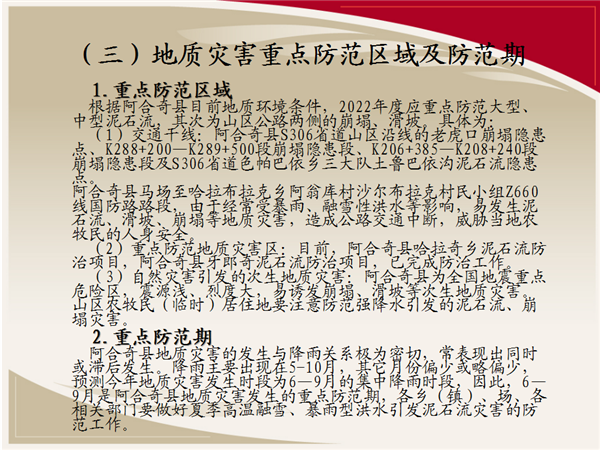 （三）地质灾害重点防范区域及防范期
1.重点防范区域
根据阿合奇县目前地质环境条件，2022年度应重点防范大型、
中型泥石流，其次为山区公路两侧的崩塌，滑坡，具体为：
（1）交通干线：阿合奇县S306省道山区沿线的老虎口崩塌隐患
点、K288+200—K289+500段崩塌隐患段、K206+385—K208+240段
崩塌隐患段及S306省道色帕巴依乡三大队土鲁巴依沟泥石流隐患
点。
阿合奇县马场至哈拉布拉克乡阿翁库村沙尔布拉克村民小组Z660
线国防路路段，由于经常受暴雨、融雪性洪水等影响，易发生泥
石流、滑坡、崩塌等地质灾害，造成公路交通中断，威胁当地农
牧民的人身安全。
（2）重点防范地质灾害区：目前，阿合奇县哈拉奇乡泥石流防
治项目，阿合奇县牙郎奇泥石流防治项目，已完成防治工作。
（3）自然灾害引发的次生地质灾害：阿合奇县为全国地震重点
危险区，震源浅、烈度大、易诱发崩塌、滑坡等次生地质灾害。
山区农牧民（临时）居住地要注意防范强降水引发的泥石流、崩
塌灾害。
2.重点防范期
阿合奇县地质灾害的发生与降雨关系极为密切，常表现出同时
或滞后发生。降雨主要出现在5-10月，其它月份偏少或略偏少，
预测今年地质灾害发生时段为6—9月的集中降雨时段，因此，6—
9月是阿合奇县地质灾害发生的重点防范期，各乡（镇）、场、各
相关部门要做好夏季高温融雪、暴雨型洪水引发泥石流灾害的防
范工作。